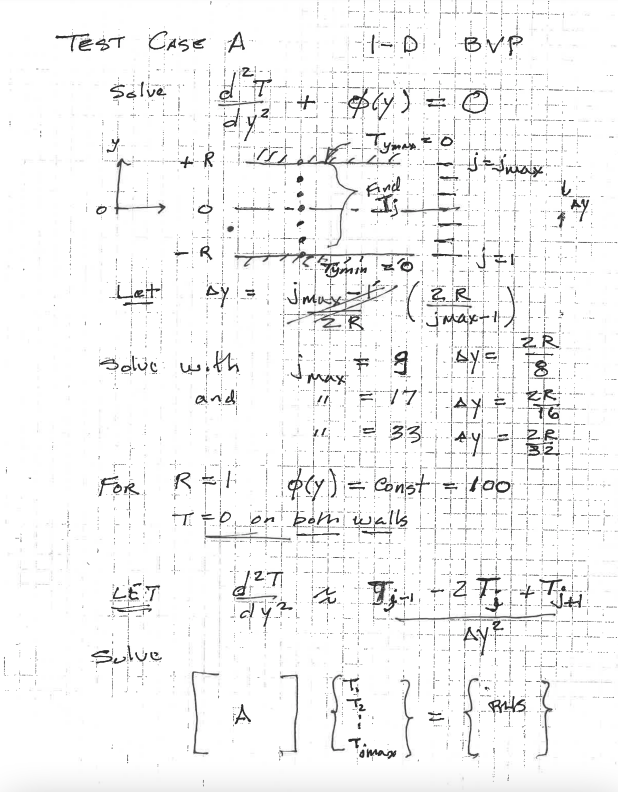 TEST CASE A 1-D BVP
Solve d²T/dy² + φ(y) = 0
y
+ R T_ymax = 0 j = jmax
Find
0 0 Tj Δy
- R T_ymin = 0 j = 1
Let Δy = jmax-1/2R (2R/jmax-1)
Solve with jmax = 9 Δy = 2R/8
and " = 17 Δy = 2R/16
" = 33 Δy = 2R/32
FOR R = 1 φ(y) = Const = 100
T = 0 on both walls
LET d²T/dy² ≈ Tj-1 - 2Tj + Tj+1/Δy²
Solve
[A] {T1 T2 ⋮ Tjmax} = {RHS}